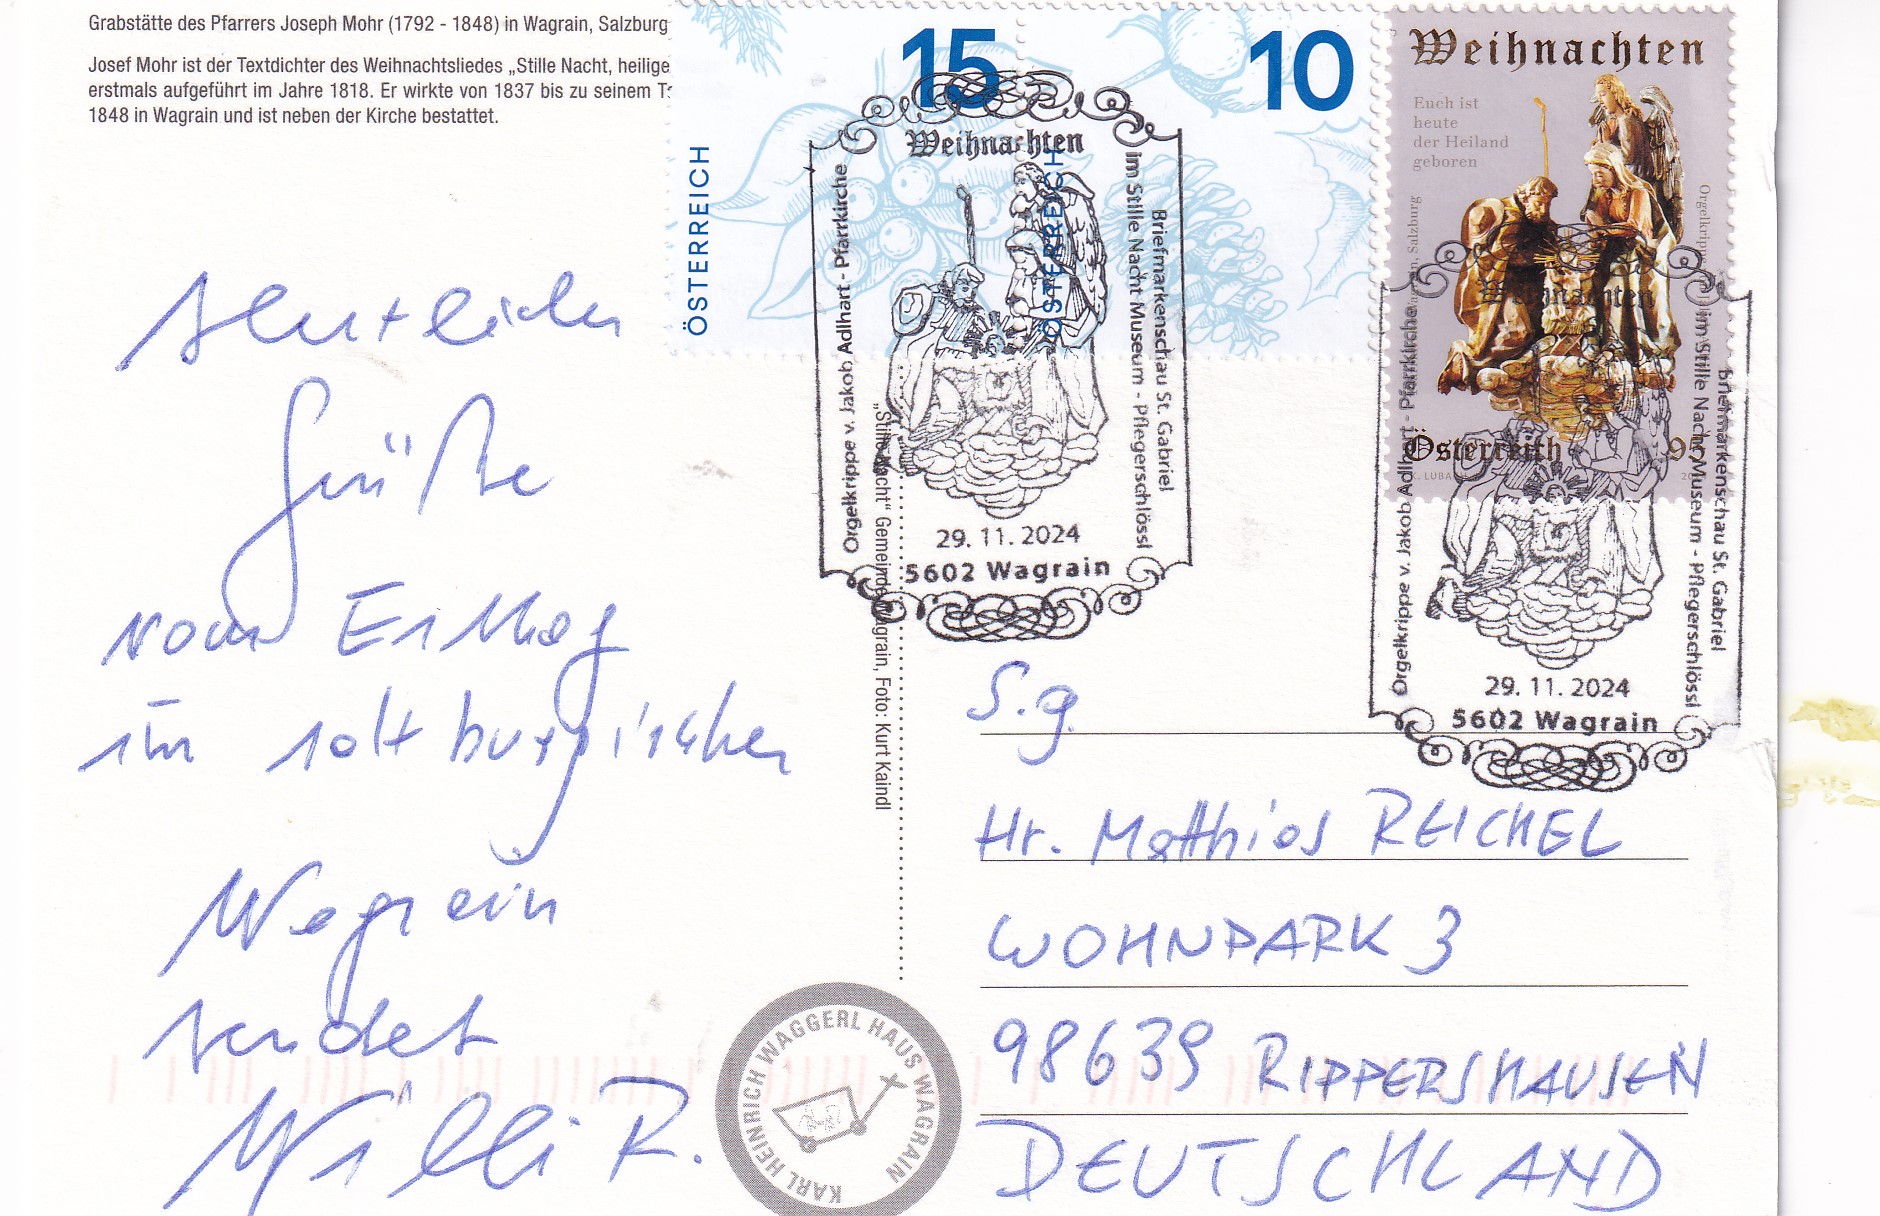 Grabstätte des Pfarrers Joseph Mohr (1792 - 1848) in Wagrain, Salzburg
Josef Mohr ist der Textdichter des Weihnachtsliedes „Stille Nacht, heilige
erstmals aufgeführt im Jahre 1818. Er wirkte von 1837 bis zu seinem T
1848 in Wagrain und ist neben der Kirche bestattet.
15
ÖSTERREICH
10
ÖSTERREICH
Weihnachten
Euch ist
heute
der Heiland
geboren
Österreich 95
Weihnachten
Orgelkrippe v. Jakob Adlhart - Pfarrkirche
Briefmarkenschau St. Gabriel
im Stille Nacht Museum - Pflegerschlössl
29. 11. 2024
5602 Wagrain
Weihnachten
Orgelkrippe v. Jakob Adlhart - Pfarrkirche
Briefmarkenschau St. Gabriel
im Stille Nacht Museum - Pflegerschlössl
29. 11. 2024
5602 Wagrain
„Stille Nacht“ Gemeinde Wagrain, Foto: Kurt Kaindl
Grüße
vom Ersttag
im saltburgischen
Wagrain
sendet
Willi R.
KARL HEINRICH WAGGERL HAUS WAGRAIN
S.g.
Hr. Matthias REICHEL
WOHNPARK 3
98639 RIPPERSHAUSEN
DEUTSCHLAND